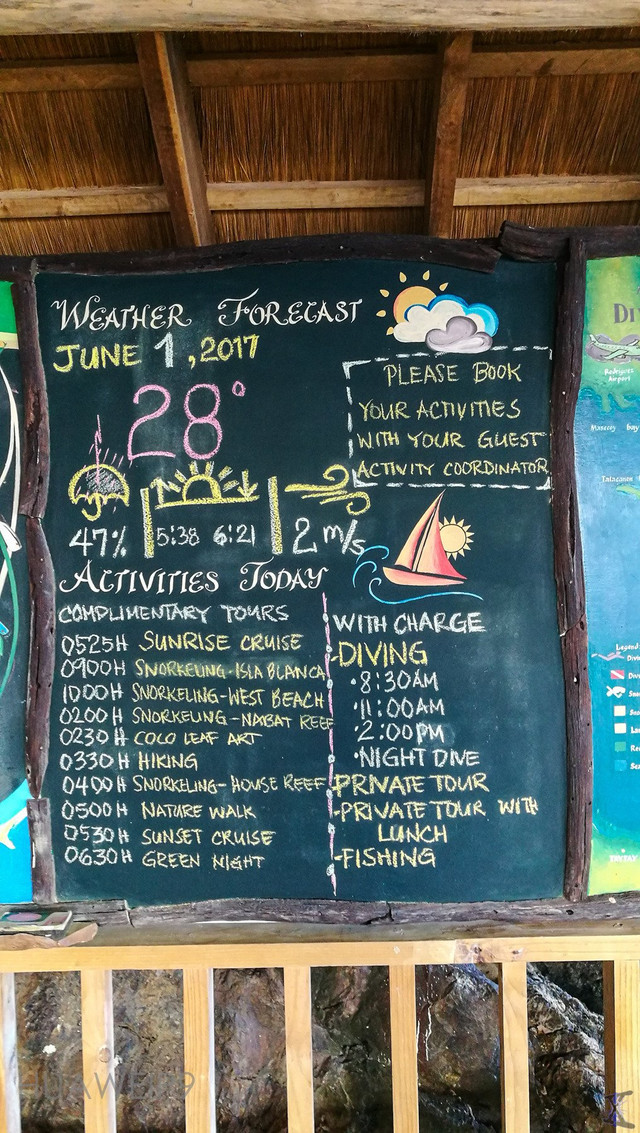 WEATHER FORECAST
JUNE 1, 2017
28°
47% 5:38 6:21 2 m/s
PLEASE BOOK
YOUR ACTIVITIES
WITH YOUR GUEST
ACTIVITY COORDINATOR
ACTIVITIES TODAY
COMPLIMENTARY TOURS
0525H SUNRISE CRUISE
0900H SNORKELING-ISLA BLANCA
1000H SNORKELING-WEST BEACH
0200H SNORKELING-NABAT REEF
0230H COCO LEAF ART
0330H HIKING
0400H SNORKELING-HOUSE REEF
0500H NATURE WALK
0530H SUNSET CRUISE
0630H GREEN NIGHT
WITH CHARGE
-DIVING
•8:30AM
•11:00AM
•2:00PM
•NIGHT DIVE
-PRIVATE TOUR
-PRIVATE TOUR WITH
LUNCH
-FISHING
Di
Rodriguez
Airport
bay
Legend:
TAYTAY
HUAWEI P9